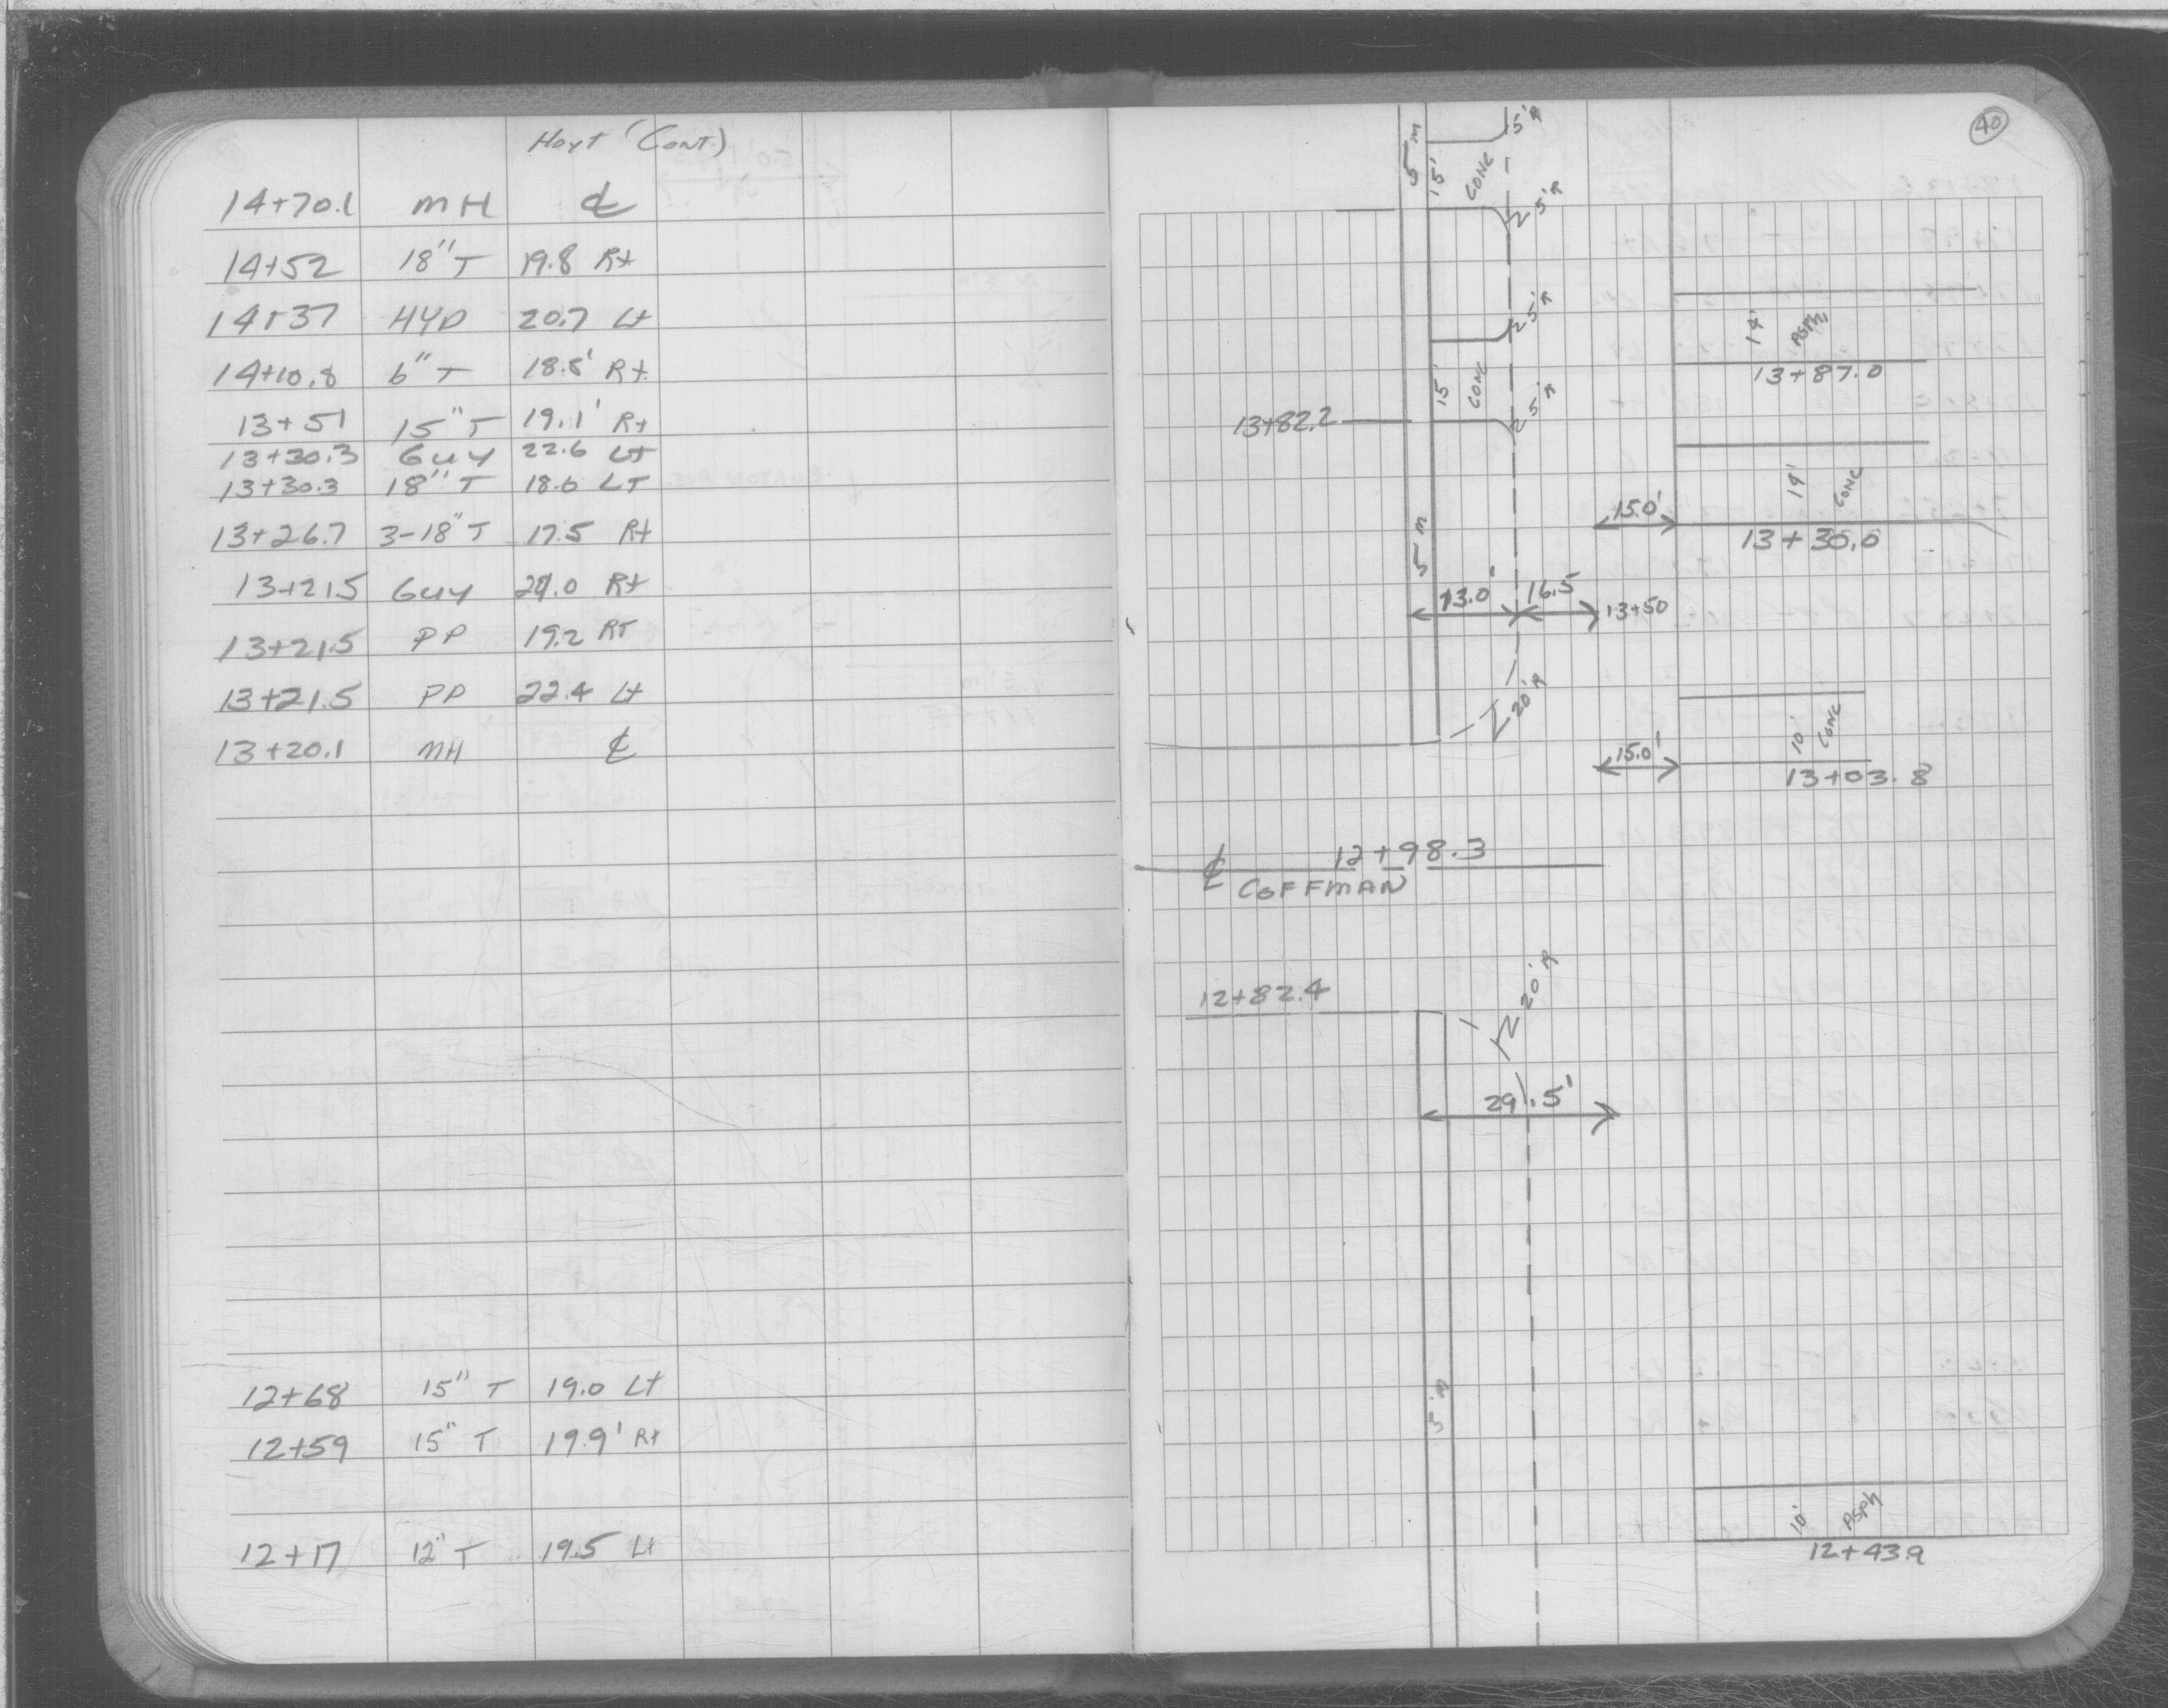 Hoyt (Cont.)
14+70.1 MH ℄
14+52 18" T 19.8 Rt
14+37 HYD 20.7 Lt
14+10.8 6" T 18.5' Rt.
13+51 15" T 19.1' Rt
13+30.3 Guy 22.6 Lt
13+30.3 18" T 18.6 LT
13+26.7 3-18" T 17.5 Rt
13+21.5 Guy Rt
13+21.5 PP 19.2 RT
13+21.5 PP 22.4 Lt
13+20.1 MH ℄
12+68 15" T 19.0 Lt
12+59 15" T 19.9' Rt
12+17 12" T 19.5 Lt
40
5'R
5 m
15'
CONC
5'R
5'R
14'
ASPH
13+87.0
15'
CONC
5'R
13+82.2
14'
CONC
15.0'
13+30.0
5 m
13.0'
16.5
13+50
20'R
10'
CONC
15.0'
13+03.8
℄ 12+98.3
COFFMAN
12+82.4
20'R
29.5'
10'
ASPH
12+43.9